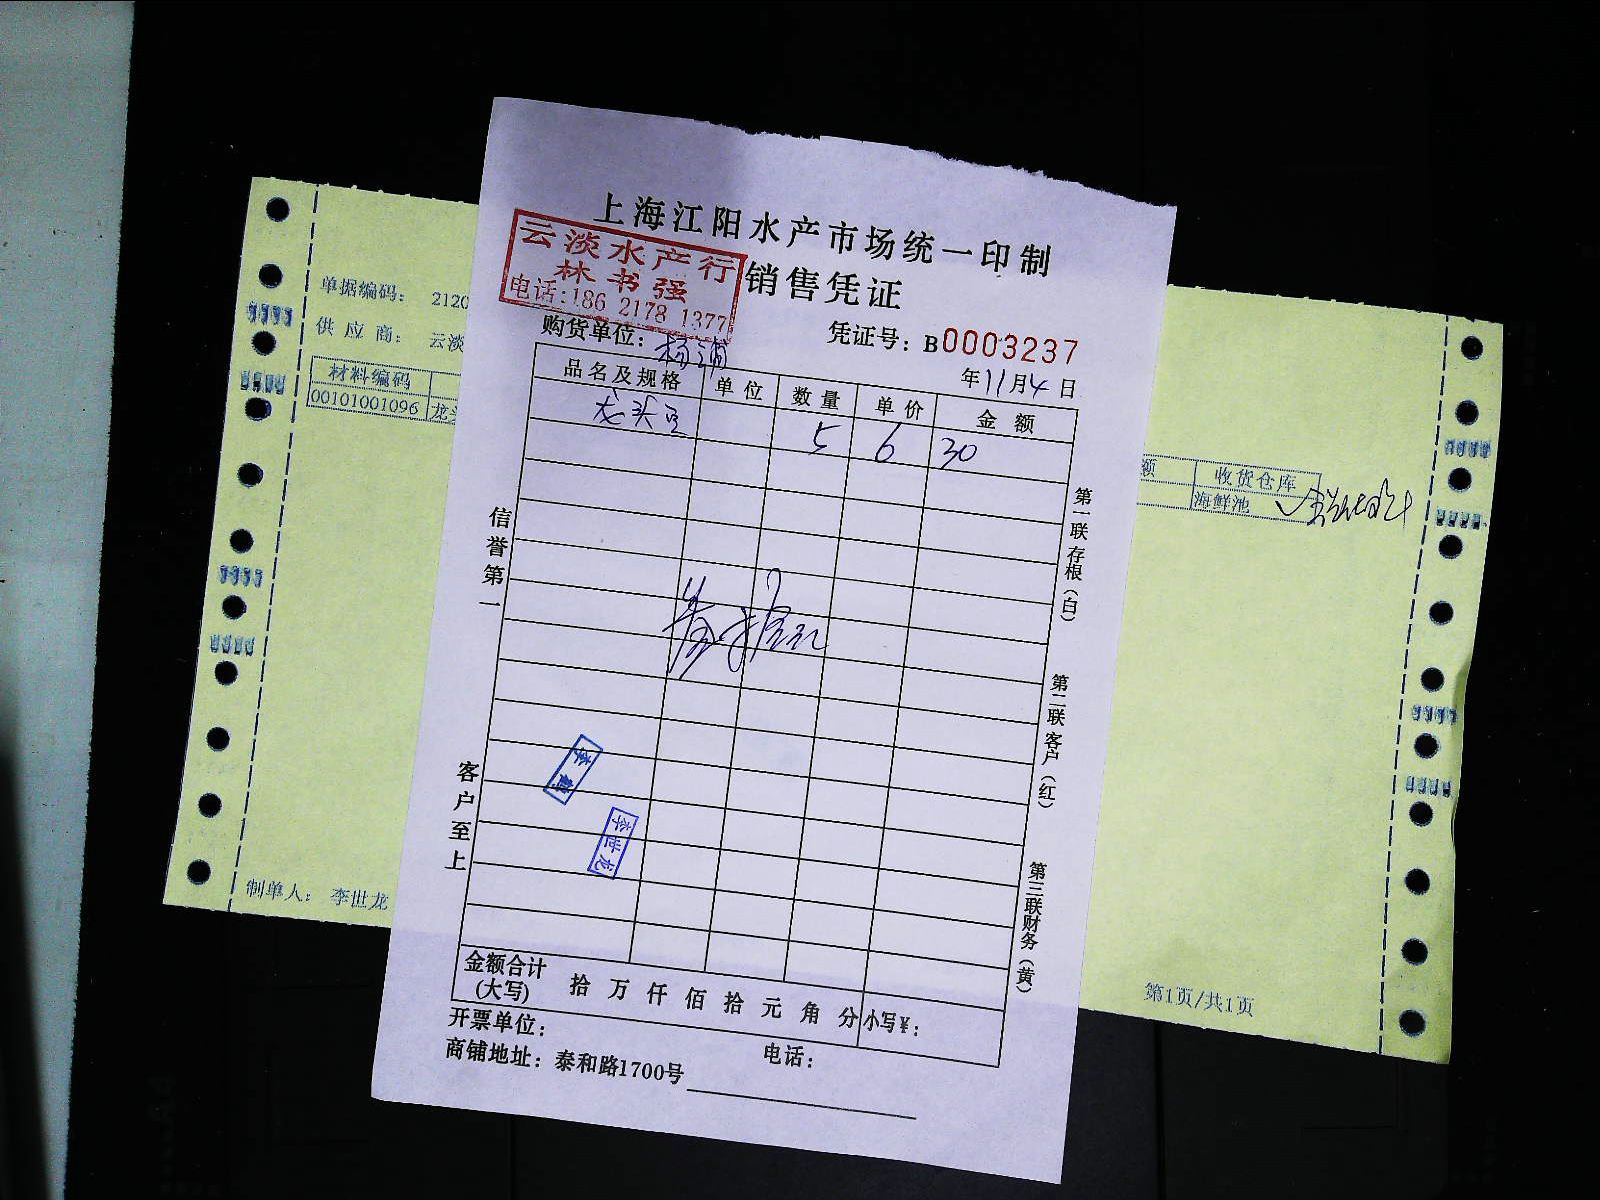 上海江阳水产市场统一印制
销售凭证
云淡水产行
林书强
电话:186 2178 1377
购货单位：杨浦
凭证号：B0003237
年11月4日
品名及规格 单位 数量 单价 金额
龙头豆 5 6 30
信誉第一
客户至上
第一联存根（白）
第二联客户（红）
第三联财务（黄）
李世龙
金额合计(大写) 拾 万 仟 佰 拾 元 角 分 小写¥：
开票单位：
电话：
商铺地址：泰和路1700号
单据编码： 2120
供应商： 云淡
材料编码
00101001096 龙头
额 收货仓库
海鲜池
制单人： 李世龙
第1页/共1页